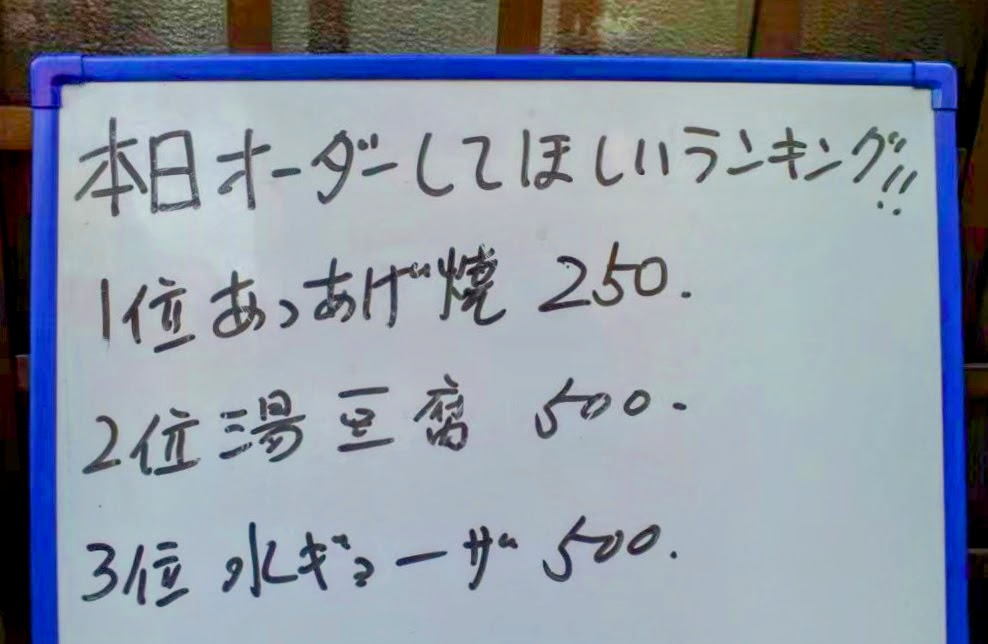 本日オーダーしてほしいランキング!!
1位 あつあげ焼 250.
2位 湯豆腐 500.
3位 水ギョーザ 500.